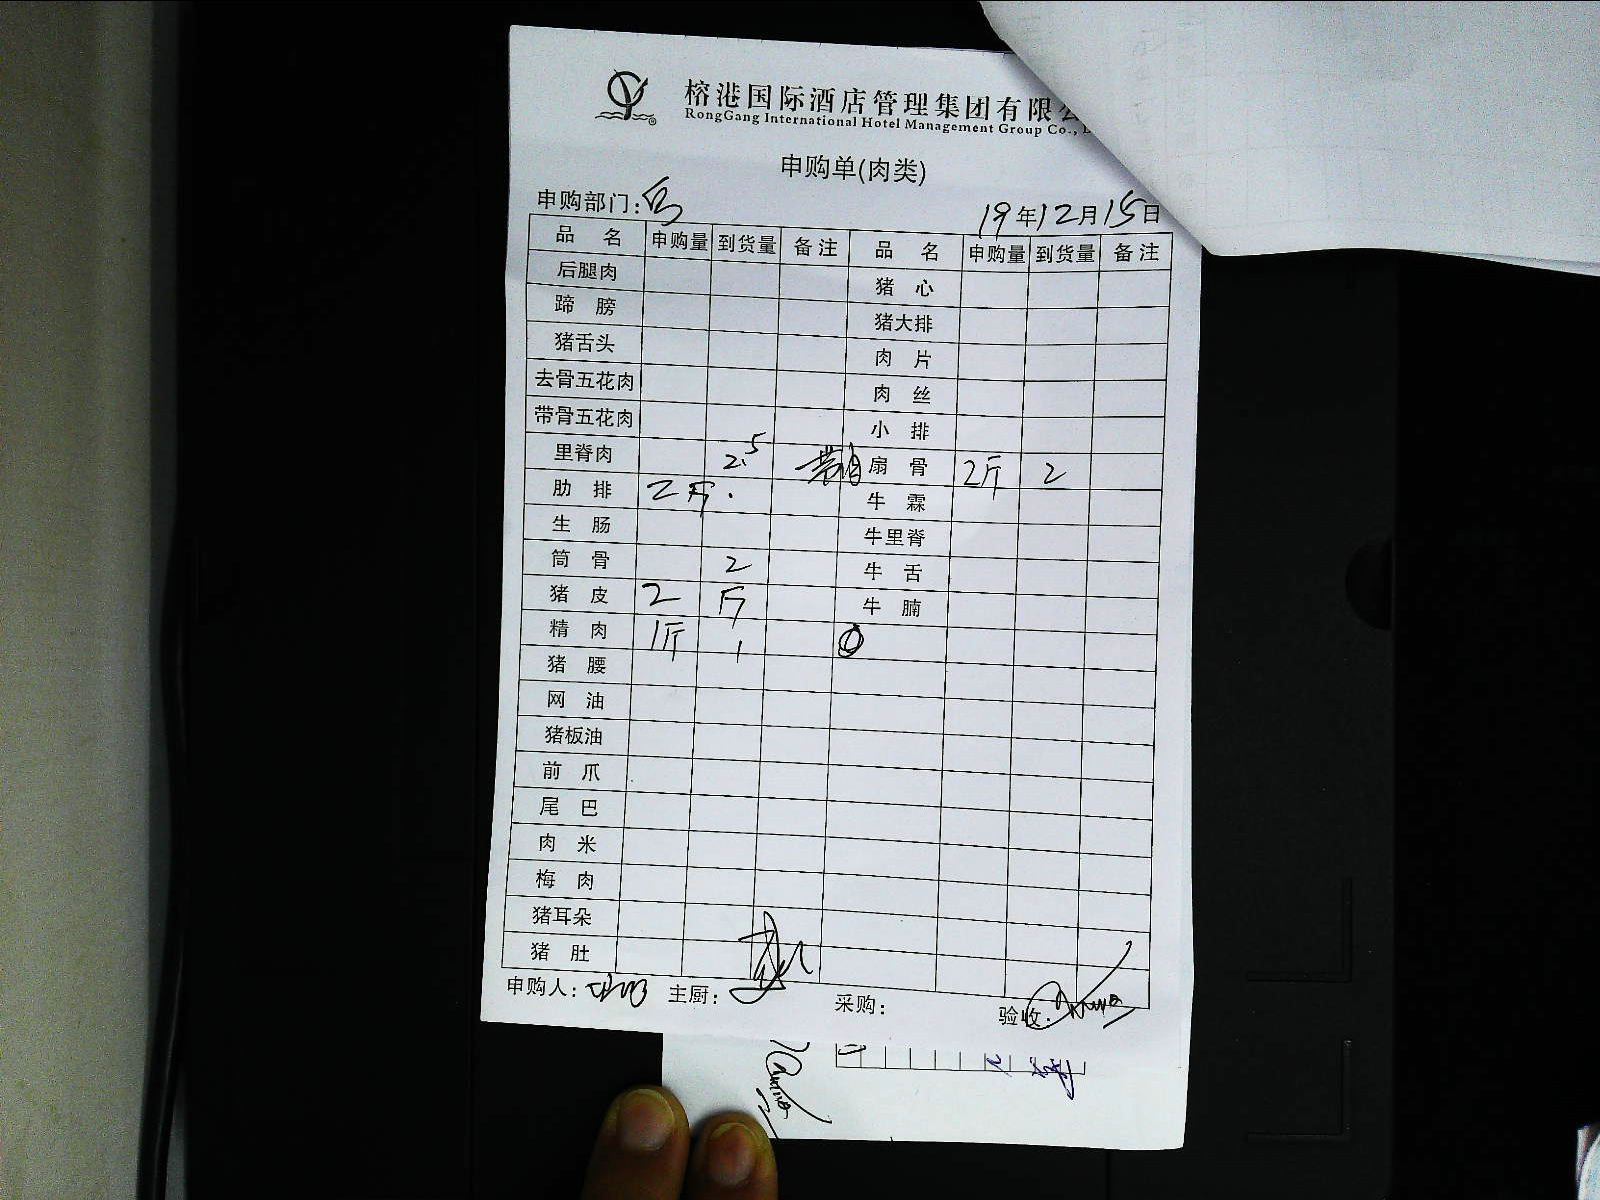 榕港国际酒店管理集团有限
RongGang International Hotel Management Group Co.,
申购单(肉类)
申购部门:
19年12月15日
品 名 申购量 到货量 备注 品 名 申购量 到货量 备注
后腿肉 猪 心
蹄 膀 猪大排
猪舌头 肉 片
去骨五花肉 肉 丝
带骨五花肉 小 排
里脊肉 2.5 扇 骨 2斤 2
肋 排 2斤 牛 霖
生 肠 牛里脊
筒 骨 2 牛 舌
猪 皮 2 斤 牛 腩
精 肉 1斤 1
猪 腰
网 油
猪板油
前 爪
尾 巴
肉 米
梅 肉
猪耳朵
猪 肚
申购人: 主厨: 采购: 验收: